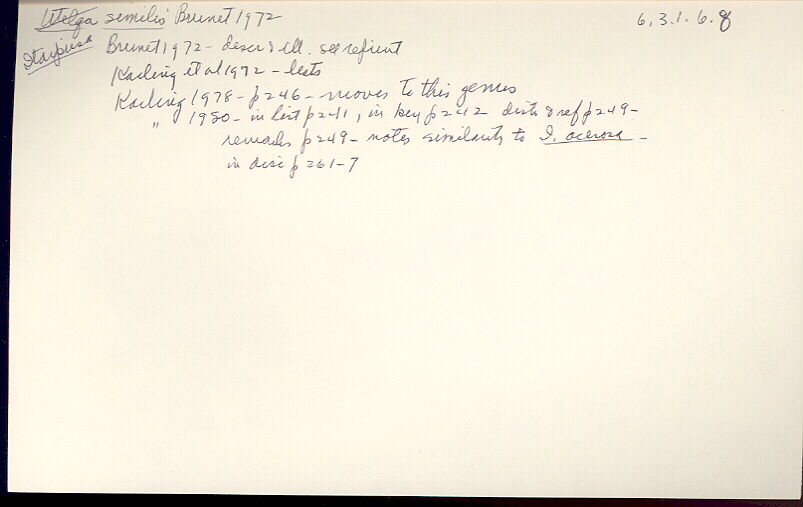 Utelga similis Brunet 1972 6.3.1.6.8
Itaipusa
Brunet 1972 - descr & ill. see reprint
Karling et al 1972 - lists
Karling 1978 - p 246 - moves to this genus
" 1980 - in list p 241, in key p 242 distr & ref p 249 -
remarks p 249 - notes similarity to I. acerosa -
in disc p 261-7